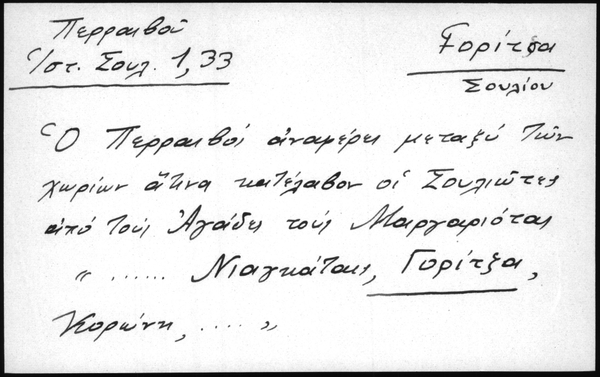 Περραιβοῦ
Ἱστ. Σουλ. 1, 33
Γορίτσα
Σουλίου
Ὁ Περραιβός ἀναφέρει μεταξύ τῶν
χωρίων ἅτινα κατέλαβον οἱ Σουλιῶτες
ἀπό τούς Ἀγάδες τούς Μαργαριότας
" ...... Νιαγκάταις, Γορίτζα,
Κορώνη, .... "